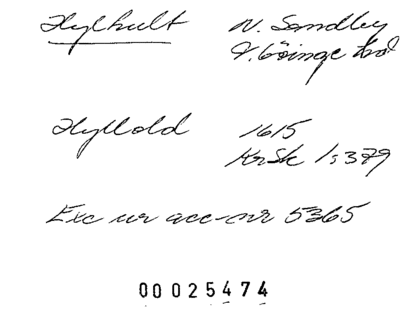 Hylhult N. Sandby
V. Göinge hd
Hyllold 1615
KrSk 1:379
Exc ur acc-nr 5365
00025474